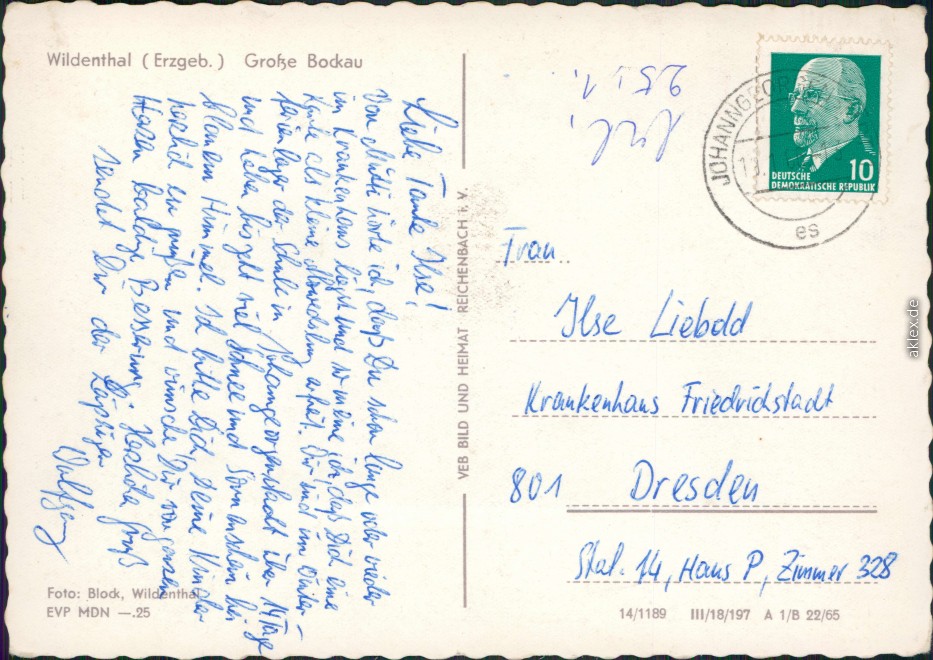 Wildenthal (Erzgeb.) Große Bockau
Liebe Tante Ilse!
Von Mutti hörte ich, daß Du schon lange oder wieder
im Krankenhaus liegst und so meine ich, daß Dich eine
Karte als kleine Abwechslung erfreut. Wir sind im Winter-
ferienlager der Schule in Johanngeorgenstadt für 14 Tage
und haben bis jetzt viel Schnee und Sonnenschein bei
blauem Himmel. Ich bitte Dich, Deine Kinder
herzlich zu grüßen und wünsche Dir von ganzem
Herzen baldige Besserung. Herzliche Grüße
sendet Dir der
Wolfgang
Foto: Block, Wildenthal
EVP MDN —.25
VEB BILD UND HEIMAT REICHENBACH i. V.
25.1.
JOHANNGEOR
es
DEUTSCHE
DEMOKRATISCHE REPUBLIK
10
Frau
Ilse Liebold
Krankenhaus Friedrichstadt
801 Dresden
Stat. 14, Haus P, Zimmer 328
14/1189 III/18/197 A 1/B 22/65
aklex.de